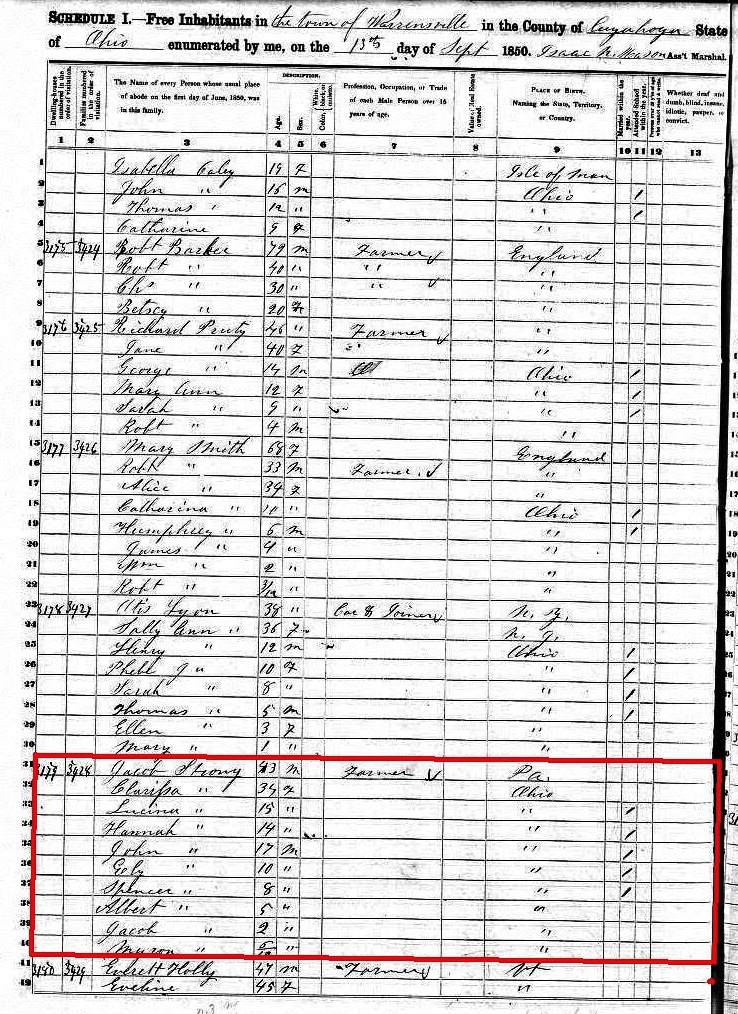 SCHEDULE I.—Free Inhabitants in the town of Warrensville in the County of Cuyahoga State
of Ohio enumerated by me, on the 13th day of Sept 1850. Isaac N. Mason Ass't Marshal.
DESCRIPTION.
Dwelling-houses numbered in the order of visitation. Families numbered in the order of visitation. The Name of every Person whose usual place of abode on the first day of June, 1850, was in this family. Age. Sex. White, black, or mulatto. Color Profession, Occupation, or Trade of each Male Person over 15 years of age. Value of Real Estate owned. PLACE OF BIRTH. Naming the State, Territory, or Country. Married within the year. Attended School within the year. Whether deaf and dumb, blind, insane, idiotic, pauper, or convict.
1 2 3 4 5 6 7 8 9 10 11 12 13
1 Isabella Caley 19 F Isle of Man
2 John " 16 m Ohio /
3 Thomas " 12 " " /
4 Catharine 9 F "
5 3175 3424 Robt Barker 79 m Farmer England
6 Robt " 40 " " "
7 Chs " 30 " " "
8 Betsey " 20 F "
9 3176 3425 Richard Pruty 46 " Farmer "
10 Jane " 40 F "
11 George " 14 m Ohio /
12 Mary Ann 12 F " /
13 Sarah " 9 " " /
14 Robt " 4 m "
15 3177 3426 Mary Smith 68 F England
16 Robt " 33 m Farmer "
17 Alice " 34 F "
18 Catharina " 10 " Ohio /
19 Humphrey " 6 m " /
20 James " 4 " "
21 Wm " 2 " "
22 Robt " 3/12 " "
23 3178 3427 Otis Lyon 38 " Car & Joiner N. Y.
24 Sally Ann " 36 F N. J.
25 Henry " 12 m Ohio /
26 Phebe J " 10 F " /
27 Sarah " 8 " " /
28 Thomas " 5 m " /
29 Ellen " 3 F "
30 Mary " 1 " "
31 3179 3428 Jacob Strong 43 m Farmer Pa.
32 Clarissa " 34 F Ohio
33 Lucina " 15 " " /
34 Hannah " 14 " " /
35 John " 17 m " /
36 Ely " 10 " /
37 Spencer " 8 " " /
38 Albert " 5 " "
39 Jacob " 2 " "
40 Myron " 6/12 " "
41 3180 3429 Everett Holly 47 m Farmer Vt
42 Eveline 45 F "